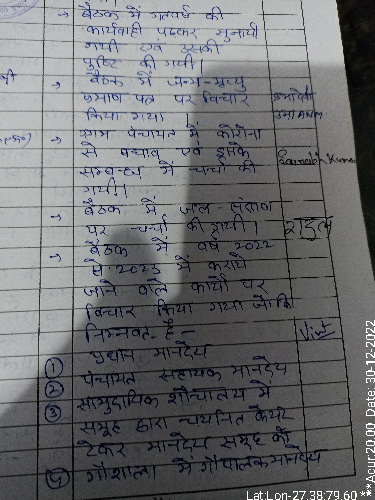 → बैठक में गतवर्ष की
कार्यवाही पढ़कर सुनायी
गयी एवं उसकी
पुष्टि की गयी।
→ बैठक में जन्म-मृत्यु
प्रमाण पत्र पर विचार
किया गया।
→ ग्राम पंचायत में कोरोना
से बचाव एवं इसके
सम्बन्ध में चर्चा की
गयी।
→ बैठक में जल-संरक्षण
पर चर्चा की गयी।
→ बैठक में वर्ष 2022
से 2023 में कराये
जाने वाले कार्यों पर
विचार किया गया जो कि
निम्नवत् है -
① प्रधान मानदेय
② पंचायत सहायक मानदेय
③ सामुदायिक शौचालय में
समूह द्वारा चयनित केयर
टेकर मानदेय समूह को
④ गौशाला में गोपालक मानदेय
राहुल
Lat:Lon-27.38:79.60 ***Acur:20.00, Date:30-12-2022